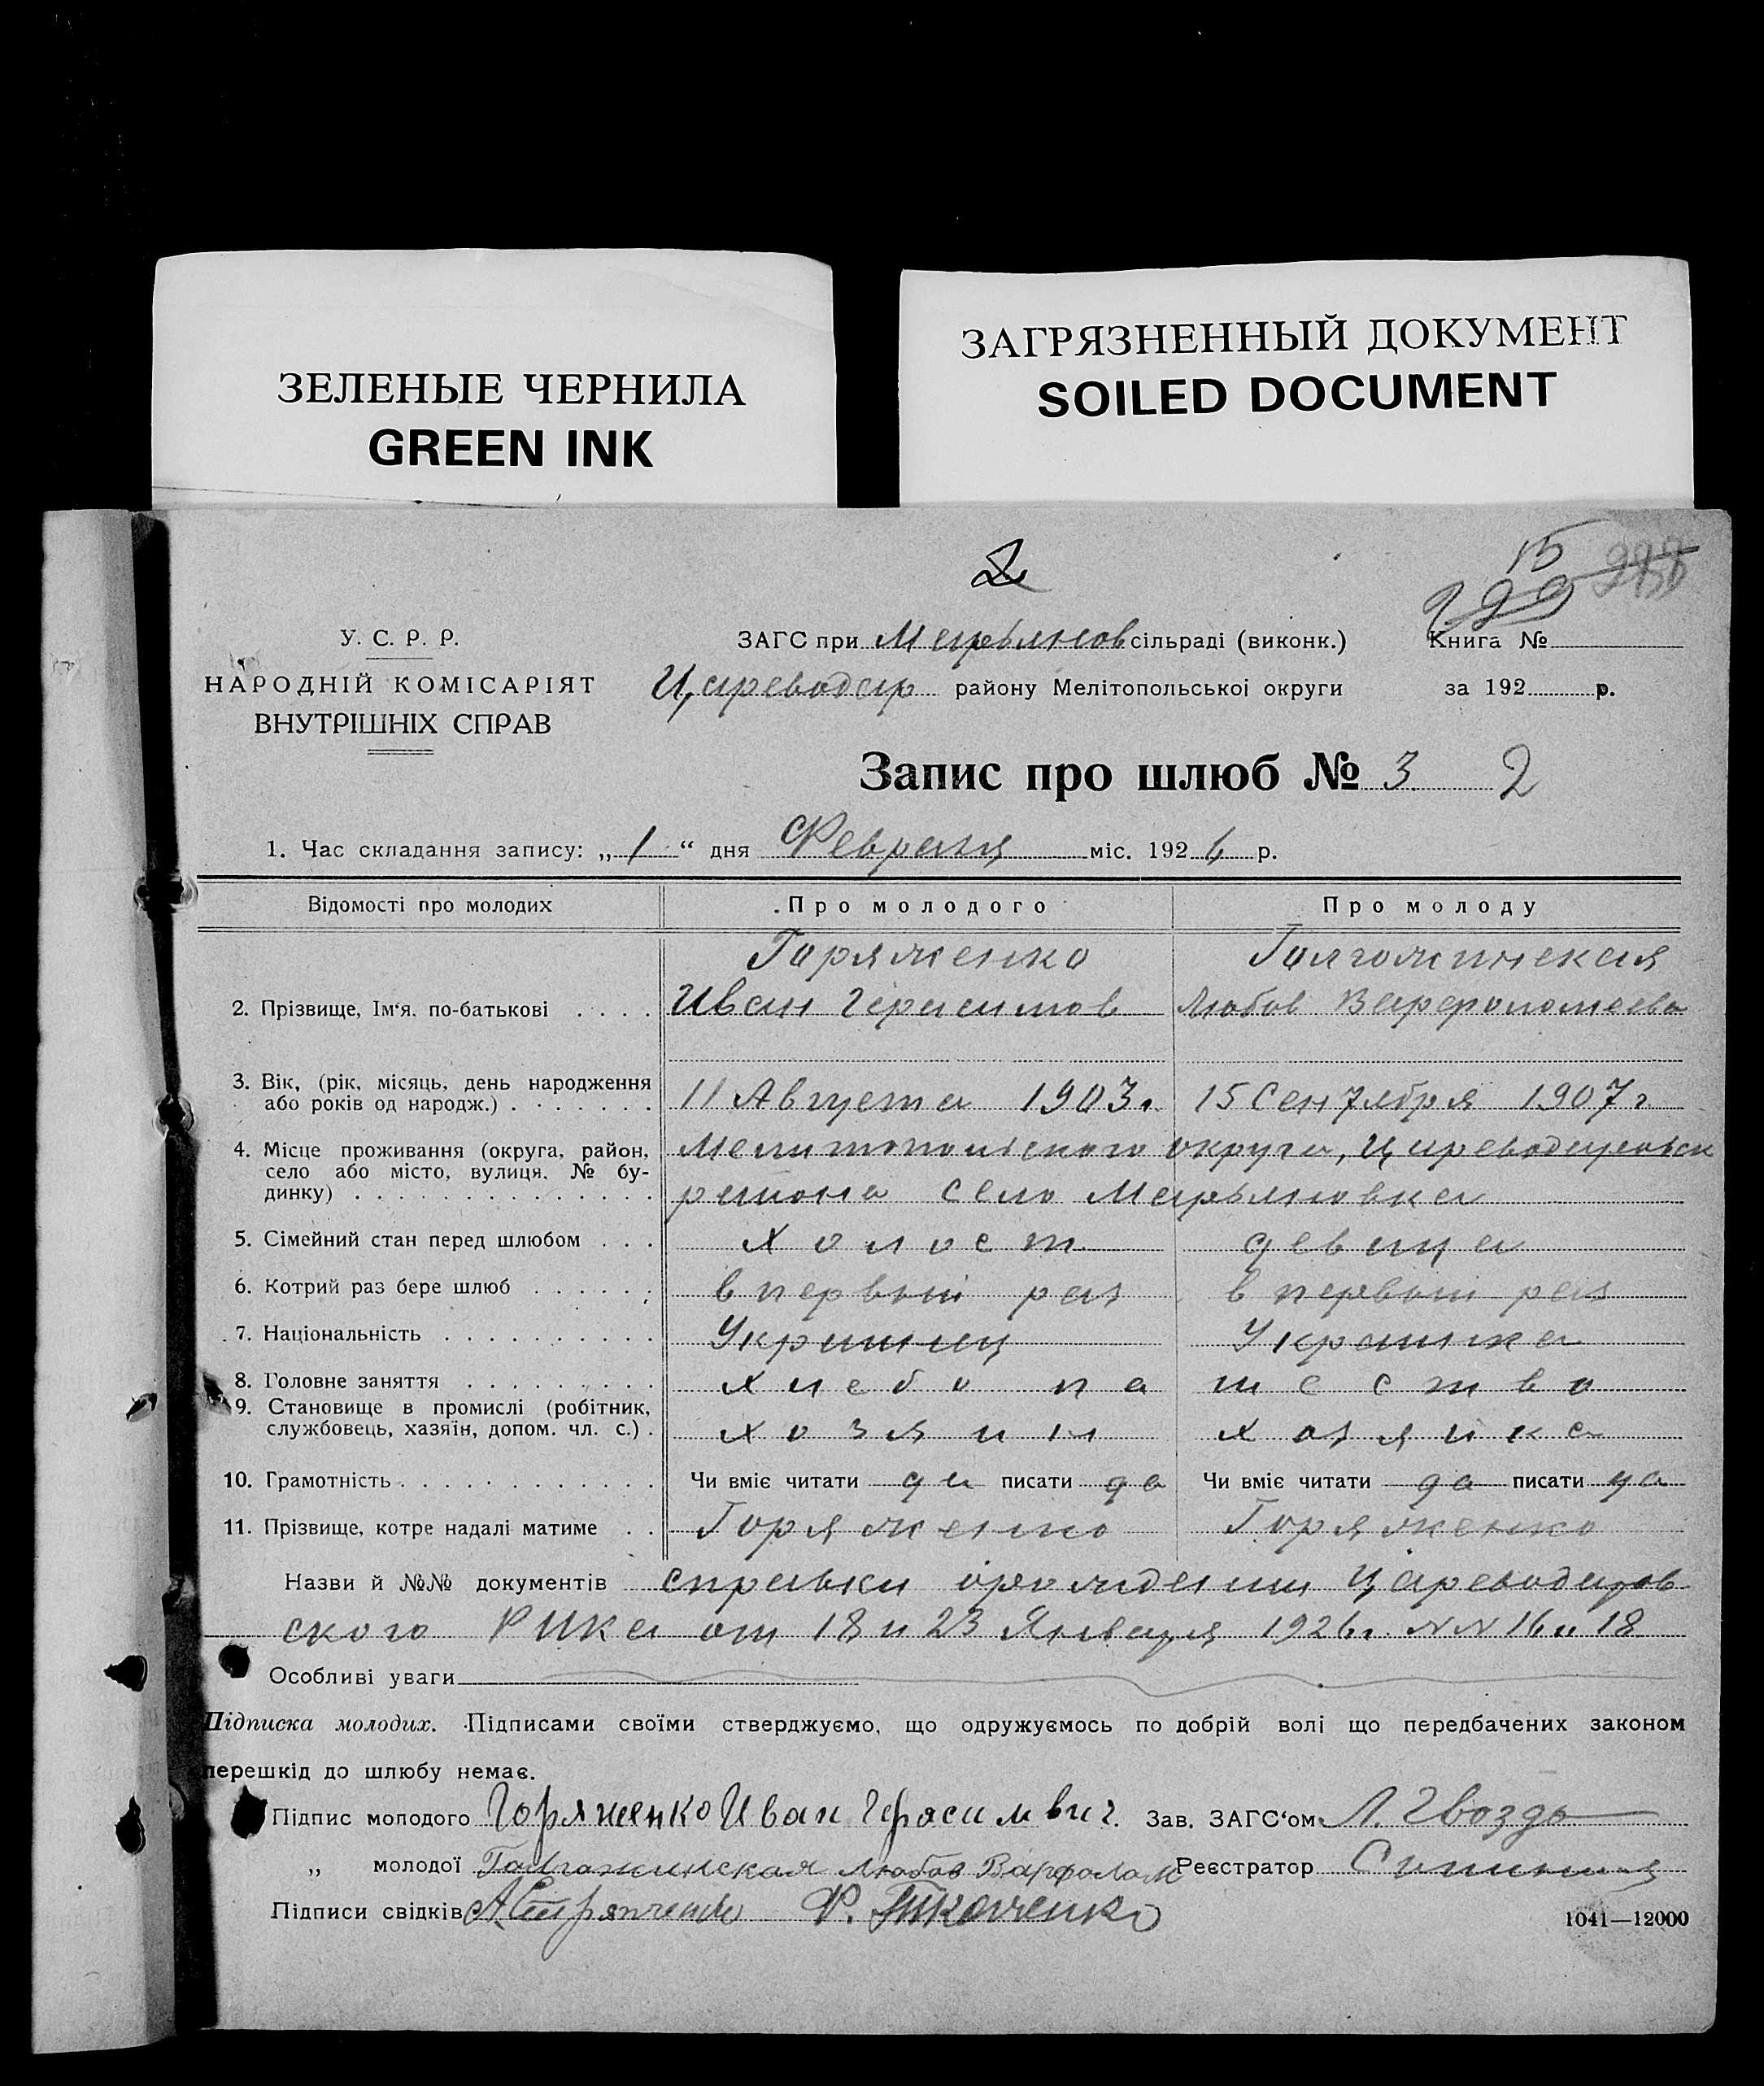 ЗЕЛЕНЫЕ ЧЕРНИЛА
GREEN INK
ЗАГРЯЗНЕННЫЙ ДОКУМЕНТ
SOILED DOCUMENT
2
15
У. С. Р. Р.
НАРОДНІЙ КОМІСАРІЯТ
ВНУТРІШНІХ СПРАВ
ЗАГС при Марьянов сільраді (виконк.)
Цареводар району Мелітопольської округи
Книга №
за 192 р.
Запис про шлюб № 3 2
1. Час складання запису: „1“ дня Февраля міс. 1926 р.
Відомості про молодих Про молодого Про молоду
Горяженко Голгожинская
2. Прізвище, Ім‘я, по-батькові Иван Герасимов Любов Варфоломеева
3. Вік, (рік, місяць, день народження
або років од народж.) 11 Августа 1903 г. 15 Сентября 1907 г
4. Місце проживання (округа, район, Мелитопольского округа, Цареводаровск
село або місто, вулиця, № бу-
динку) района село Марьяновка
5. Сімейний стан перед шлюбом холост девица
6. Котрий раз бере шлюб в первый раз в первый раз
7. Національність Украинец Украинка
8. Головне заняття хлебопашество
9. Становище в промислі (робітник,
службовець, хазяїн, допом. чл. с.) хозяин хозяика
10. Грамотність Чи вміє читати да писати да Чи вміє читати да писати да
11. Прізвище, котре надалі матиме Горяженко Горяженко
Назви й №№ документів справки орождении Цареводаров
ского РИКа от 18 и 23 Января 1926 г. NN 16 и 18
Особливі уваги
Підписка молодих. Підписами своїми стверджуємо, що одружуємось по добрій волі що передбачених законом
перешкід до шлюбу немає.
Підпис молодого Горяженко Иван Герасимвич. Зав. ЗАГС‘ом Л. Гвоздь
„ молодої Голгожинская Любов Варфолом Реєстратор
Підписи свідків Ф. Ткаченко
1041—12000